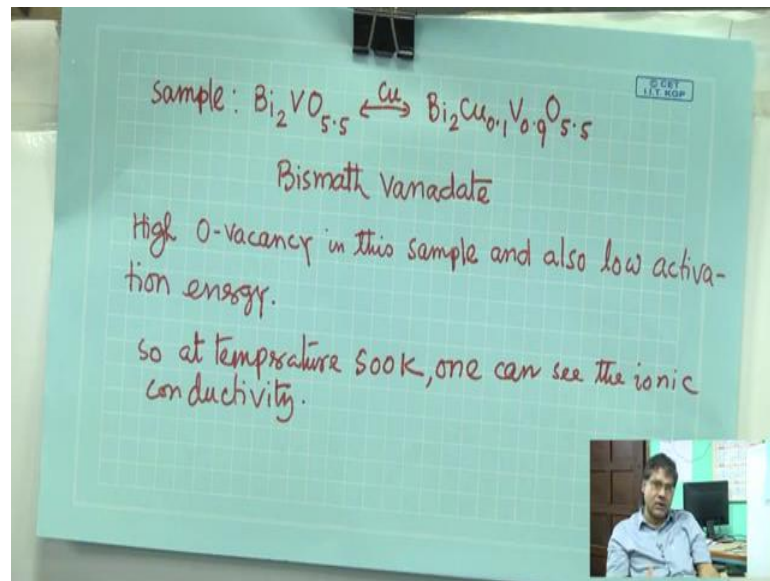 Sample: Bi₂VO₅.₅ ⟷ Cu Bi₂Cu₀.₁V₀.₉O₅.₅
© CET
I.I.T. KGP
Bismath Vanadate
High O-vacancy in this sample and also low activa-
tion energy.
so at temprature 500K, one can see the ionic
conductivity.